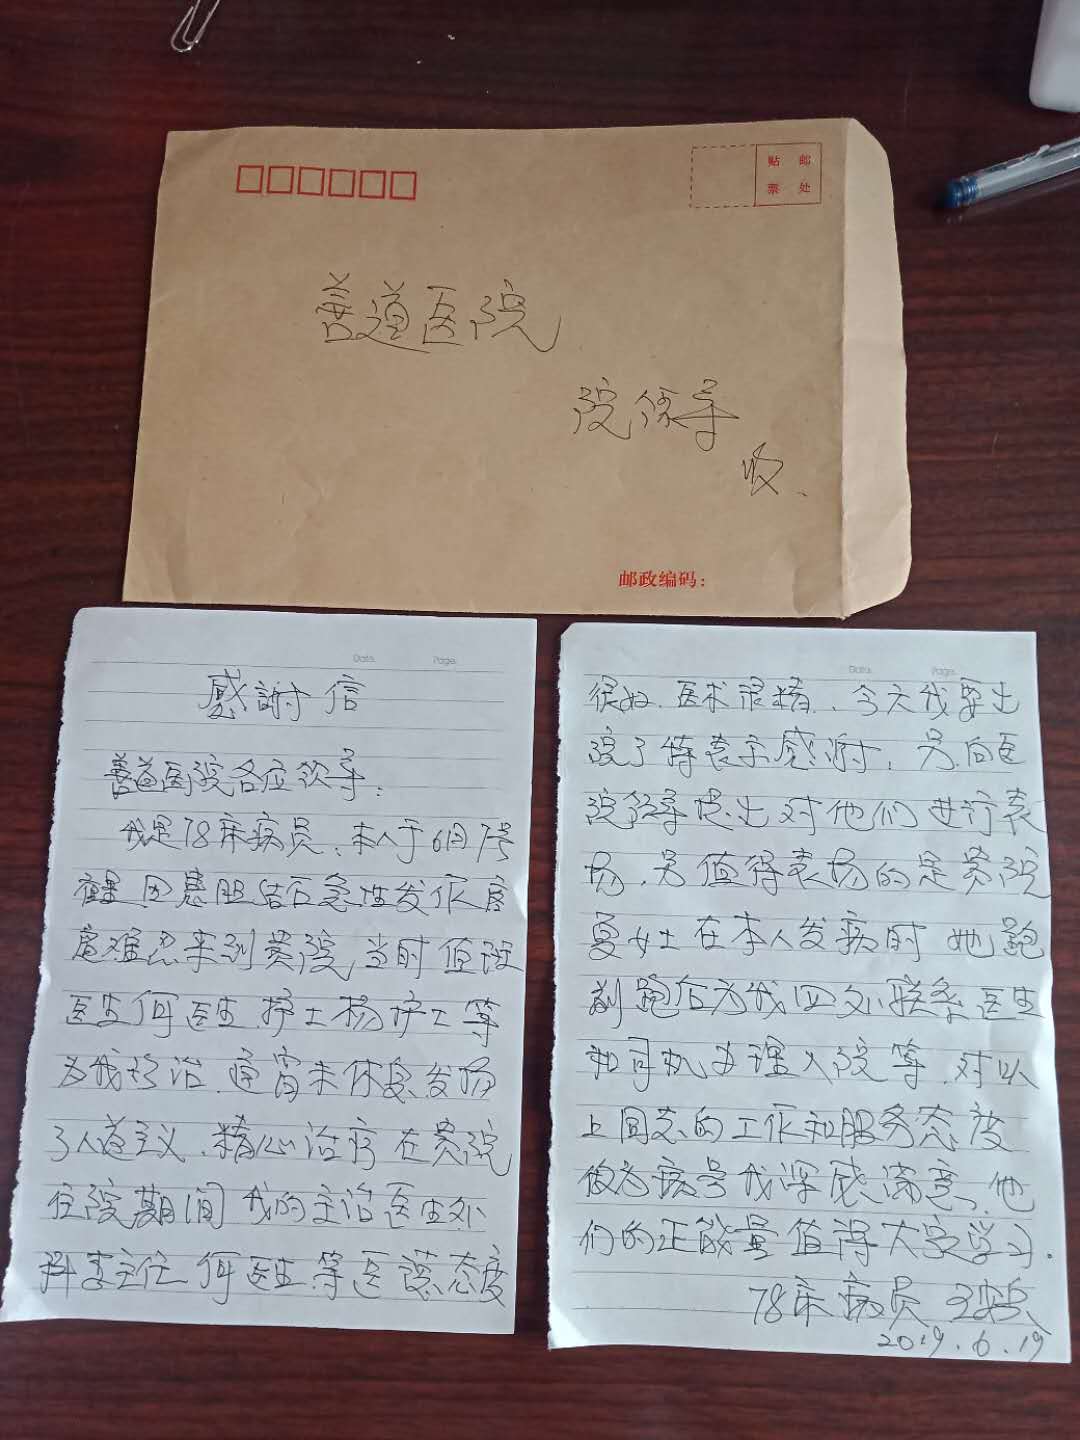 贴 邮
票 处
善道医院
院领导
收、
邮政编码：
Date. Page.
感謝信
善道医院各位领导：
我是78床病员，本人于6月7号
因患胆结石急性发作疼
难忍来到贵院，当时值
医生何医生 护士杨护士等
为我诊治，通宵未休息，发扬
了人道主义，精心治疗在贵院
住院期间我的主治医生外
科李主任 何医生等医 态度
Date. Page.
很好，医术很精，今天我要出
院了特表示感谢，另向医
院领导提出对他们进行表
扬，另值得表扬的是贵院
夏女士在本人发病时她跑
前跑后为我四处联系医生
和司机办理入院等，对以
上同志的工作和服务态度
做为病号我深感满意，他
们的正能量值得大家学习。
78床病员
2019.6.19